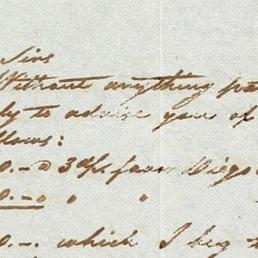 Sirs
Without anything pa
ly to advise you of
llows:
0.-@ 3 d/s favor Diego
0.-" " "
0.-. which I beg t